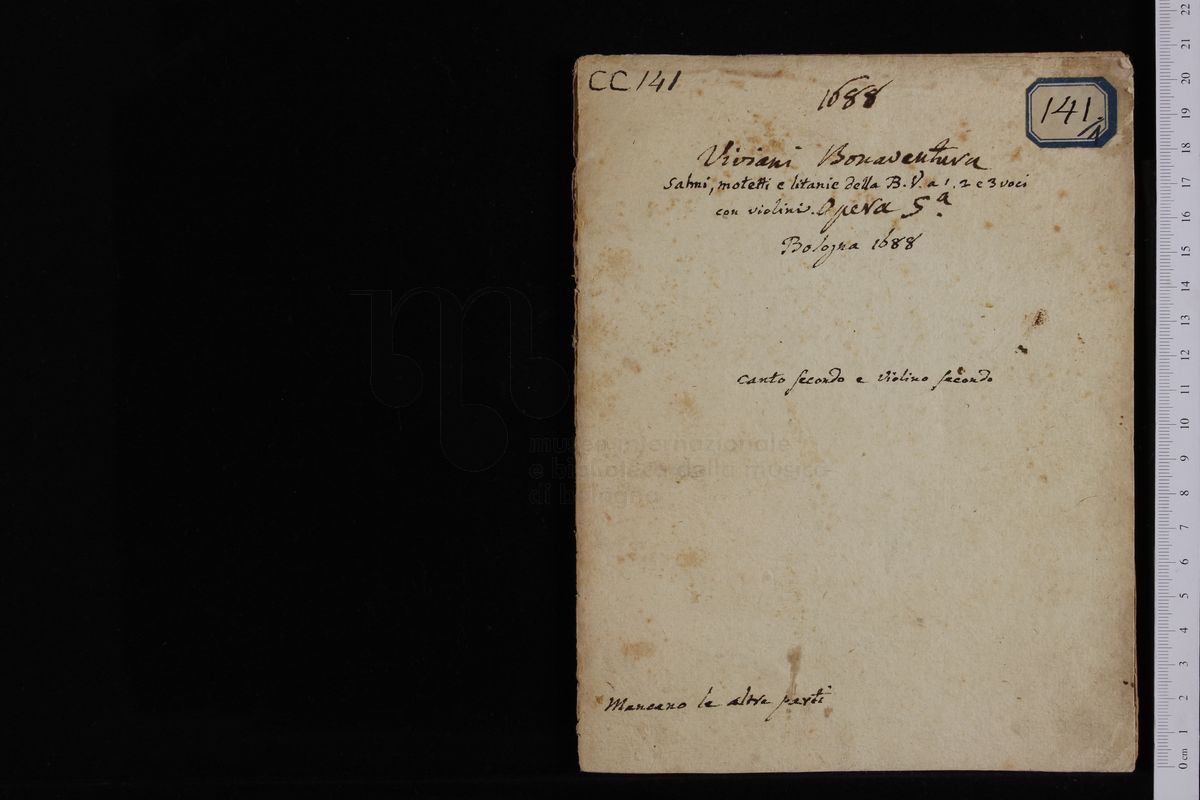 CC 141
1688
141.
Viviani Bonaventura
Salmi, motetti e litanie della B. V. a 1. 2 e 3 voci
con violini. Opera 5.a
Bologna 1688
canto secondo e violino secondo
museo internazionale
e biblioteca della musica
di bologna
Mancano le altre parti
22
21
20
19
18
17
16
15
14
13
12
11
10
9
8
7
6
5
4
3
2
1
0 cm